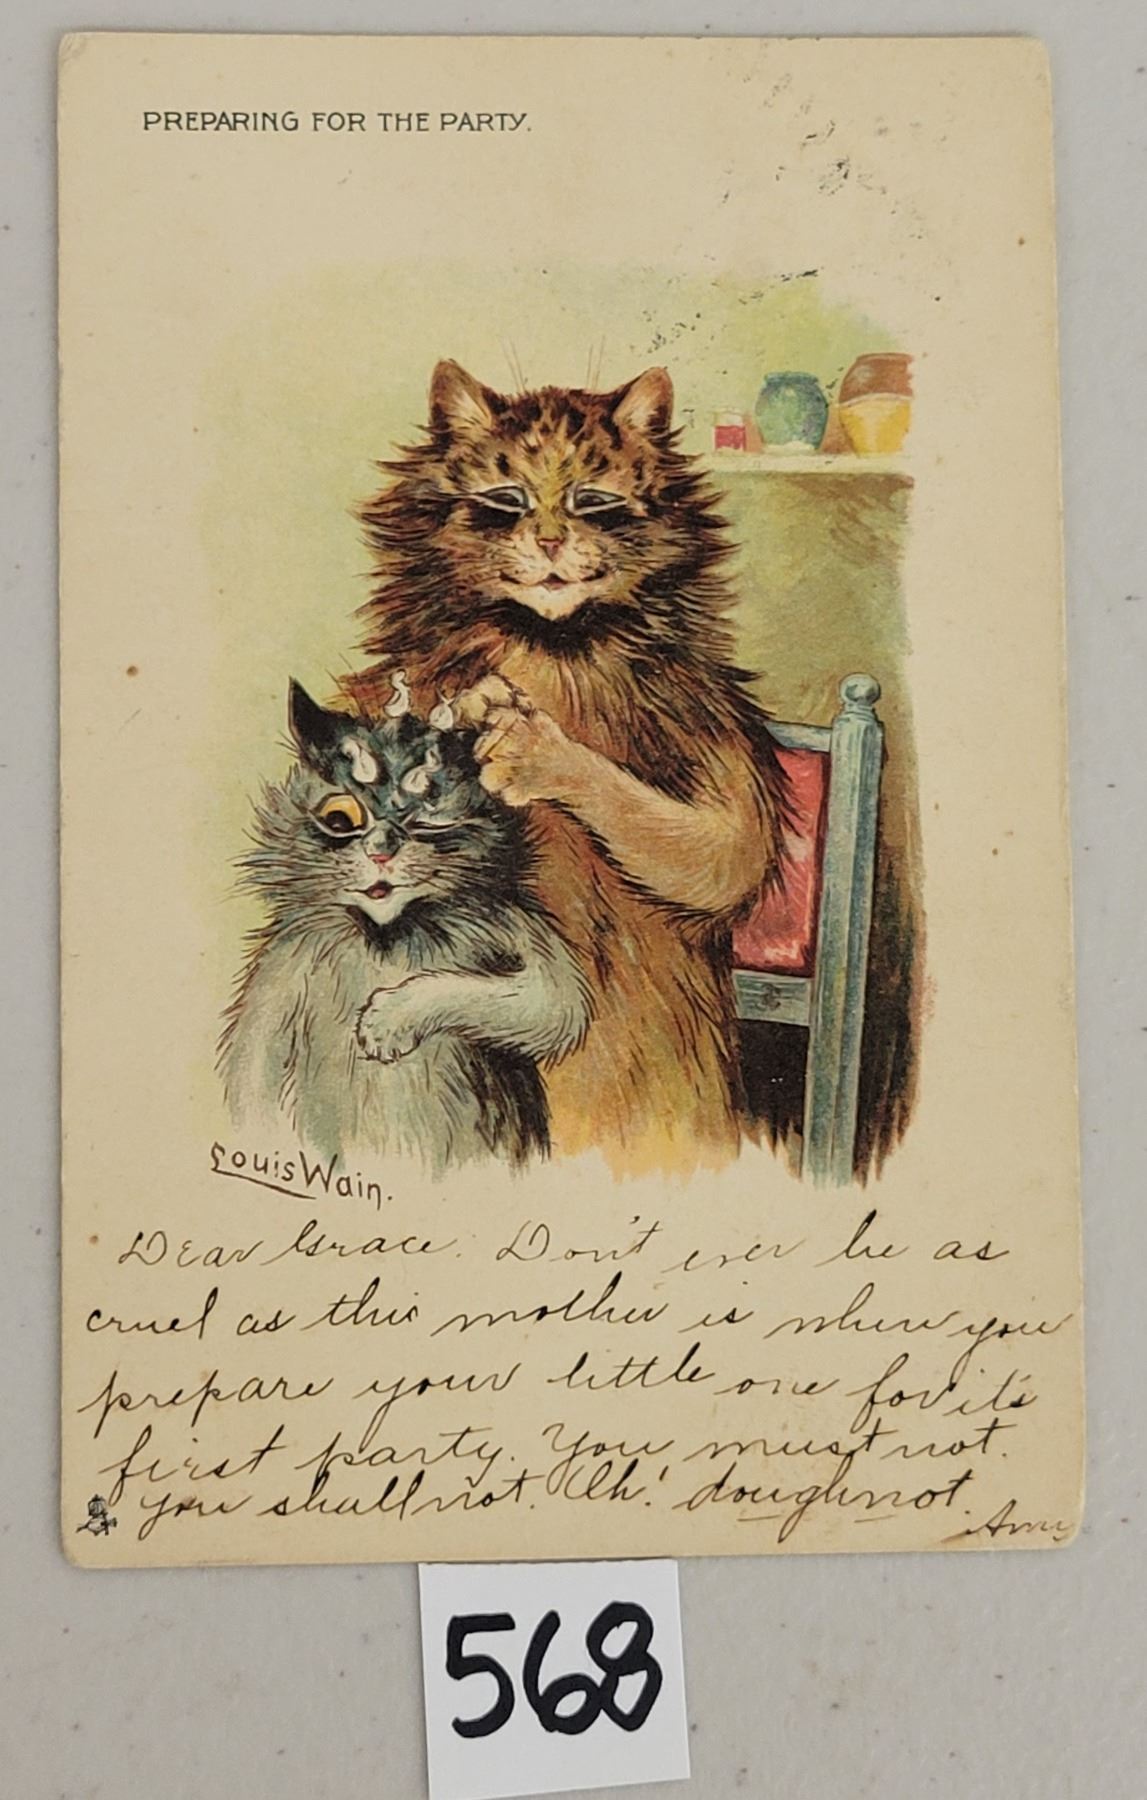 PREPARING FOR THE PARTY.
Louis Wain.
Dear Grace. Don't ever be as
cruel as this mother is when you
prepare your little one for it's
first party. You must not.
you shall not. Oh! doughnot.
Amy
568